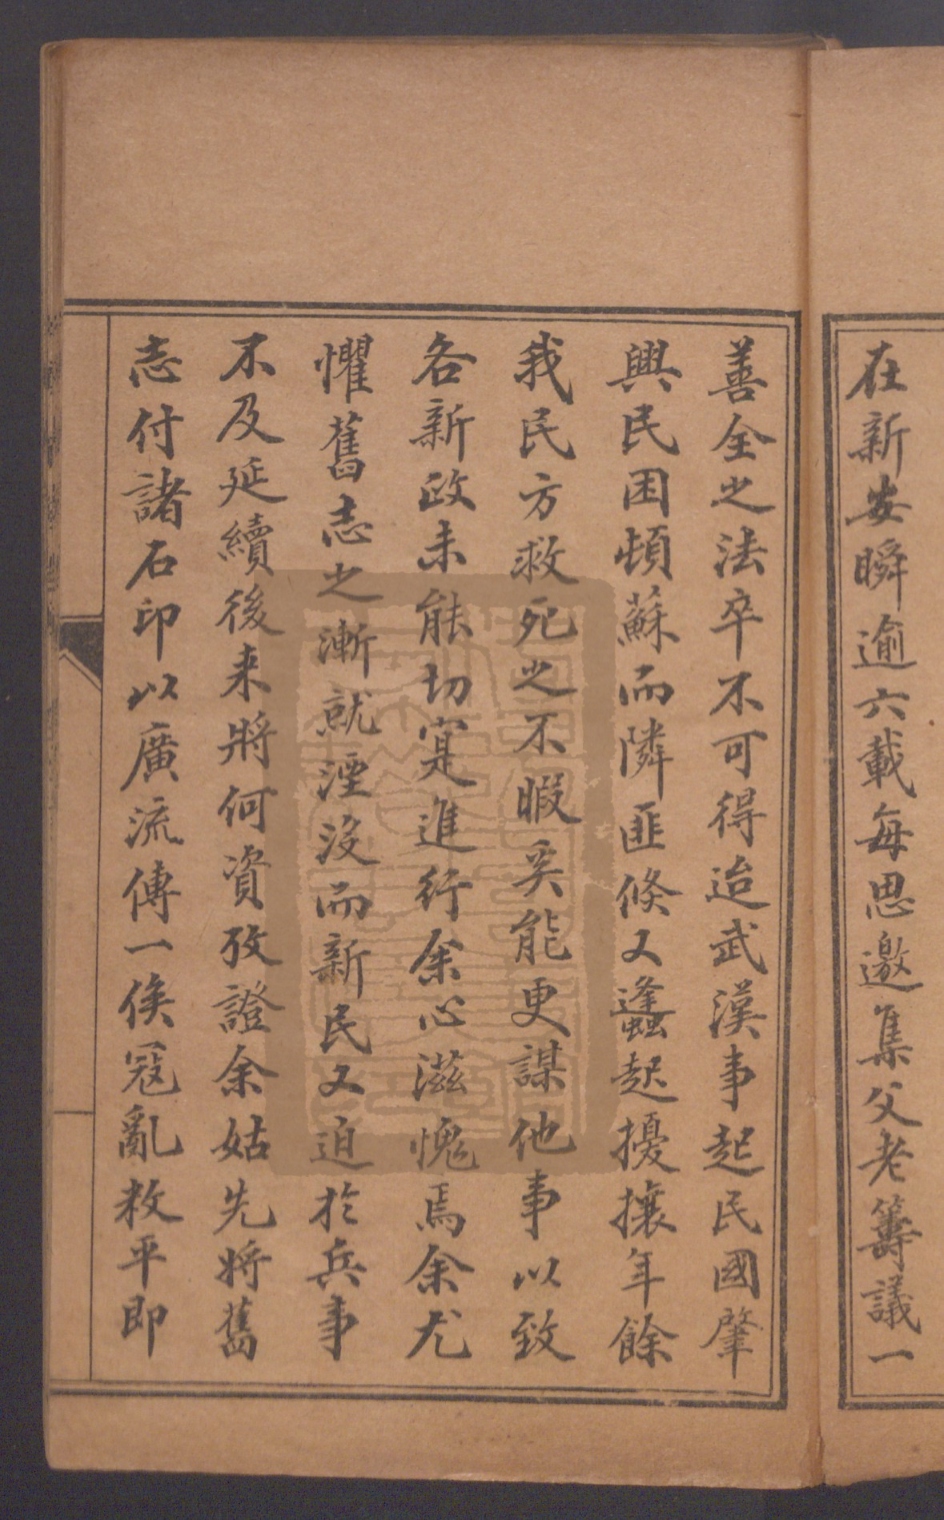 在新安瞬逾六載每思邀集父老籌議一
善全之法卒不可得迨武漢事起民國肇
興民困頓蘇而隣匪倏又蠭起擾攘年餘
我民方救死之不暇奚能更謀他事以致
各新政未能切寔進行余心滋愧焉余尤
懼舊志之漸就湮没而新民又迫於兵事
不及延續後来將何資攷證余姑先將舊
志付諸石印以廣流傳一俟冦亂敉平即